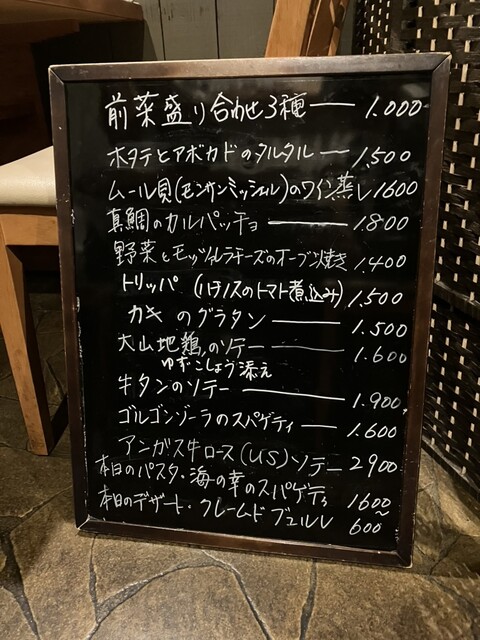 前菜盛り合わせ3種 ― 1.000
ホタテとアボカドのタルタル ― 1,500
ムール貝(モンサンミッシェル)のワイン蒸し 1600
真鯛のカルパッチョ ― 1.800
野菜とモッツァレラチーズのオーブン焼き 1.400
トリッパ (ハチノスのトマト煮込み) 1,500
カキのグラタン ― 1.500
大山地鶏のソテー ― 1.600
ゆずこしょう添え
牛タンのソテー ― 1.900
ゴルゴンゾーラのスパゲティ ― 1.600
アンガス牛ロース(US)ソテー 2900
本日のパスタ・海の幸のスパゲティ 1600~
本日のデザート・クレームドブュルレ 600